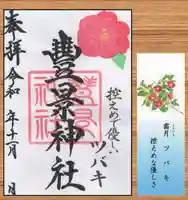 奉拝
令和 年十一月 日
豊景神社
控えめで優しい
ツバキ
霜月 ツバキ
控えめな優しさ